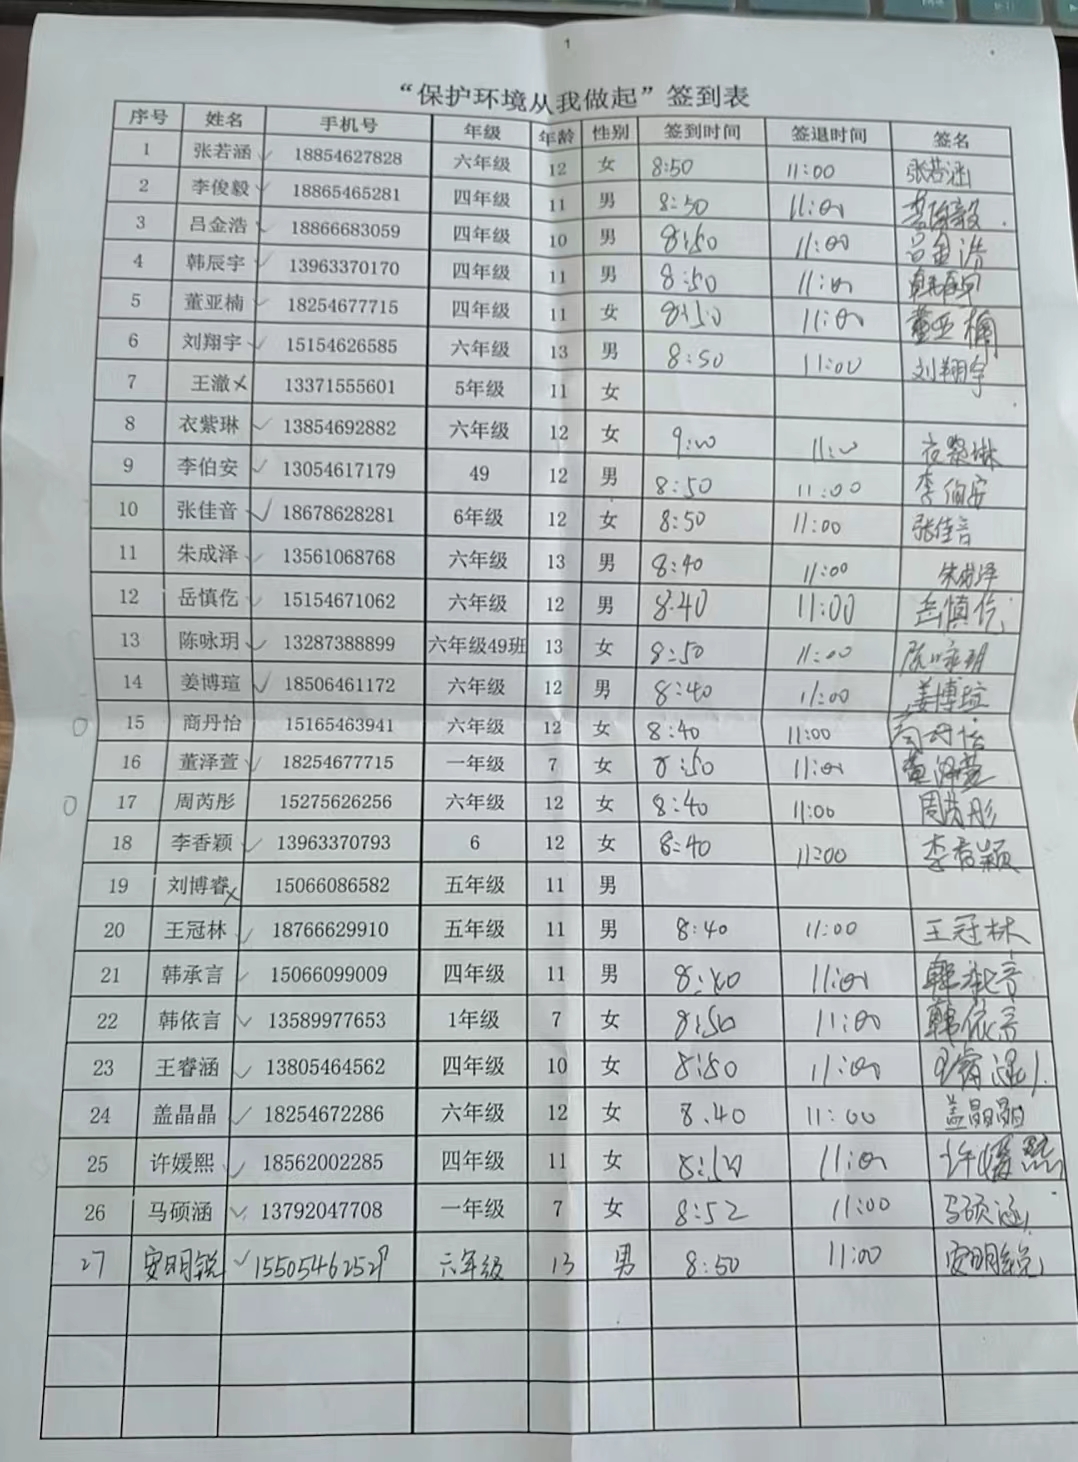 1
“保护环境从我做起”签到表
序号 姓名 手机号 年级 年龄 性别 签到时间 签退时间 签名
1 张若涵 18854627828 六年级 12 女 8:50 11:00 张若涵
2 李俊毅 18865465281 四年级 11 男 8:50 11:00 李俊毅
3 吕金浩 18866683059 四年级 10 男 8:50 11:00 吕金浩
4 韩辰宇 13963370170 四年级 11 男 8:50 11:00 韩辰宇
5 董亚楠 18254677715 四年级 11 女 8:50 11:00 董亚楠
6 刘翔宇 15154626585 六年级 13 男 8:50 11:00 刘翔宇
7 王澈 13371555601 5年级 11 女
8 衣紫琳 13854692882 六年级 12 女 9:00 11:00 衣紫琳
9 李伯安 13054617179 49 12 男 8:50 11:00 李伯安
10 张佳音 18678628281 6年级 12 女 8:50 11:00 张佳音
11 朱成泽 13561068768 六年级 13 男 8:40 11:00 朱成泽
12 岳慎仡 15154671062 六年级 12 男 8:40 11:00 岳慎仡
13 陈咏玥 13287388899 六年级49班 13 女 8:50 11:00 陈咏玥
14 姜博瑄 18506461172 六年级 12 男 8:40 11:00 姜博瑄
15 商丹怡 15165463941 六年级 12 女 8:40 11:00 商丹怡
16 董泽萱 18254677715 一年级 7 女 8:50 11:00 董泽萱
17 周芮彤 15275626256 六年级 12 女 8:40 11:00 周芮彤
18 李香颖 13963370793 6 12 女 8:40 11:00 李香颖
19 刘博睿 15066086582 五年级 11 男
20 王冠林 18766629910 五年级 11 男 8:40 11:00 王冠林
21 韩承言 15066099009 四年级 11 男 11:00 韩承言
22 韩依言 13589977653 1年级 7 女 8:50 11:00 韩依言
23 王睿涵 13805464562 四年级 10 女 8:50 11:00 王睿涵
24 盖晶晶 18254672286 六年级 12 女 8.40 11:00 盖晶晶
25 许媛熙 18562002285 四年级 11 女 8:50 11:00 许媛熙
26 马硕涵 13792047708 一年级 7 女 8:52 11:00 马硕涵
27 安明锐 15505462529 六年级 13 男 8:50 11:00 安明锐